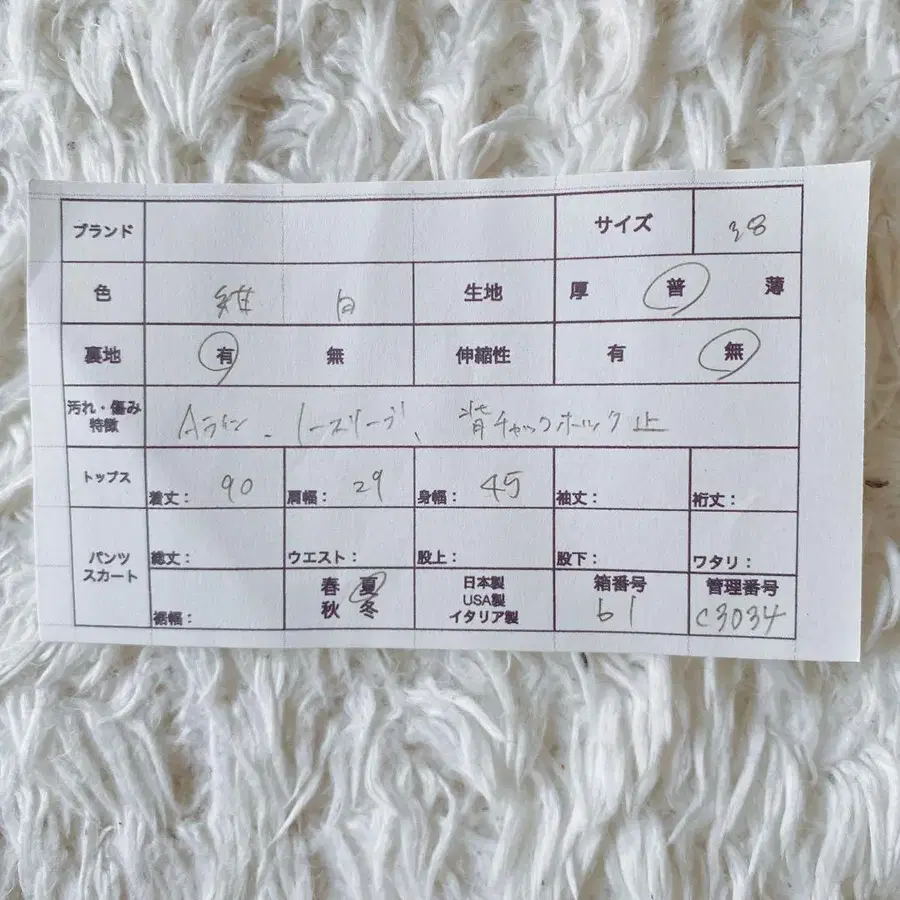 ブランド サイズ 38
色 紺 白 生地 厚 普 薄
裏地 有 無 伸縮性 有 無
汚れ・傷み
特徴
Aライン、ノースリーブ、背チャックホック止
トップス 着丈: 90 肩幅: 29 身幅: 45 袖丈: 裄丈:
パンツ
スカート
総丈: ウエスト: 股上: 股下: ワタリ:
裾幅:
春 夏
秋 冬
日本製
USA製
イタリア製
箱番号
b1
管理番号
C3034